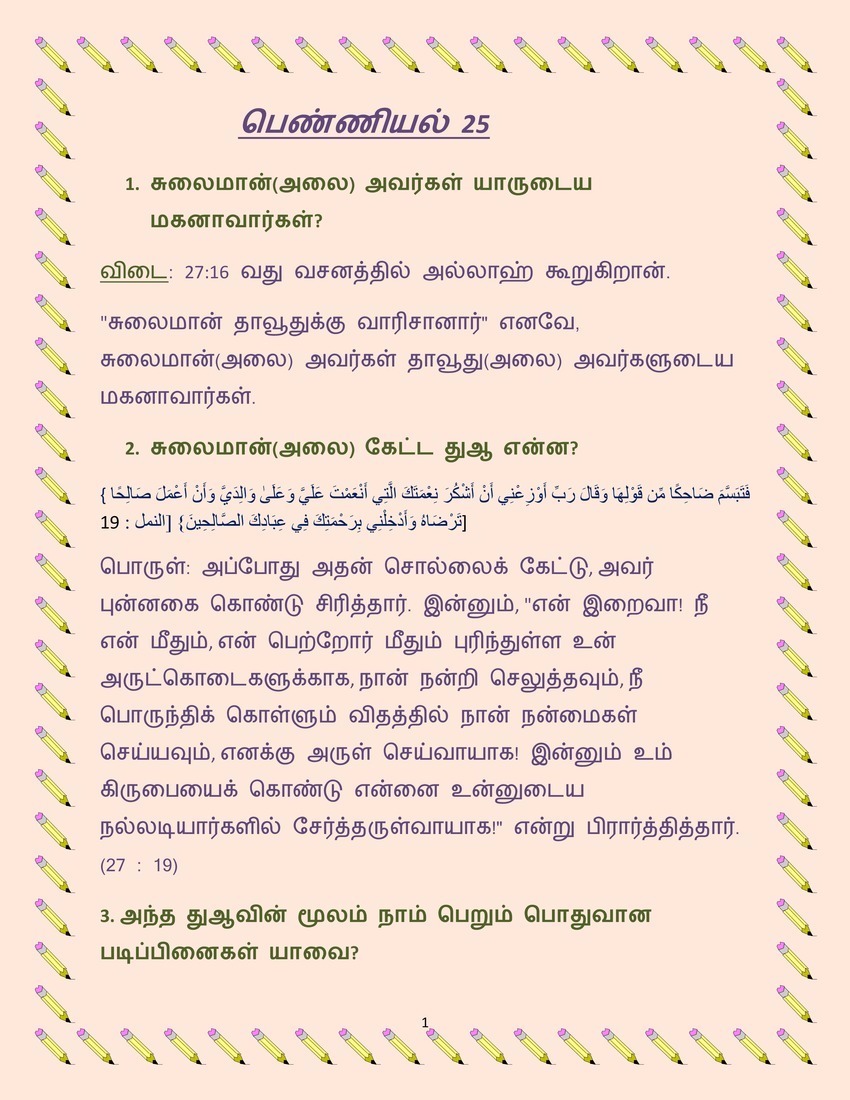 பெண்ணியல் 25
1. சுலைமான்(அலை) அவர்கள் யாருடைய
மகனாவார்கள்?
விடை: 27:16 வது வசனத்தில் அல்லாஹ் கூறுகிறான்.
"சுலைமான் தாவூதுக்கு வாரிசானார்" எனவே,
சுலைமான்(அலை) அவர்கள் தாவூது(அலை) அவர்களுடைய
மகனாவார்கள்.
2. சுலைமான்(அலை) கேட்ட துஆ என்ன?
فَتَبَسَّمَ ضَاحِكًا مِّن قَوْلِهَا وَقَالَ رَبِّ أَوْزِعْنِي أَنْ أَشْكُرَ نِعْمَتَكَ الَّتِي أَنْعَمْتَ عَلَيَّ وَعَلَىٰ وَالِدَيَّ وَأَنْ أَعْمَلَ صَالِحًا {
[تَرْضَاهُ وَأَدْخِلْنِي بِرَحْمَتِكَ فِي عِبَادِكَ الصَّالِحِينَ} [النمل : 19
பொருள்: அப்போது அதன் சொல்லைக் கேட்டு, அவர்
புன்னகை கொண்டு சிரித்தார். இன்னும், "என் இறைவா! நீ
என் மீதும், என் பெற்றோர் மீதும் புரிந்துள்ள உன்
அருட்கொடைகளுக்காக, நான் நன்றி செலுத்தவும், நீ
பொருந்திக் கொள்ளும் விதத்தில் நான் நன்மைகள்
செய்யவும், எனக்கு அருள் செய்வாயாக! இன்னும் உம்
கிருபையைக் கொண்டு என்னை உன்னுடைய
நல்லடியார்களில் சேர்த்தருள்வாயாக!" என்று பிரார்த்தித்தார்.
(27 : 19)
3. அந்த துஆவின் மூலம் நாம் பெறும் பொதுவான
படிப்பினைகள் யாவை?
1